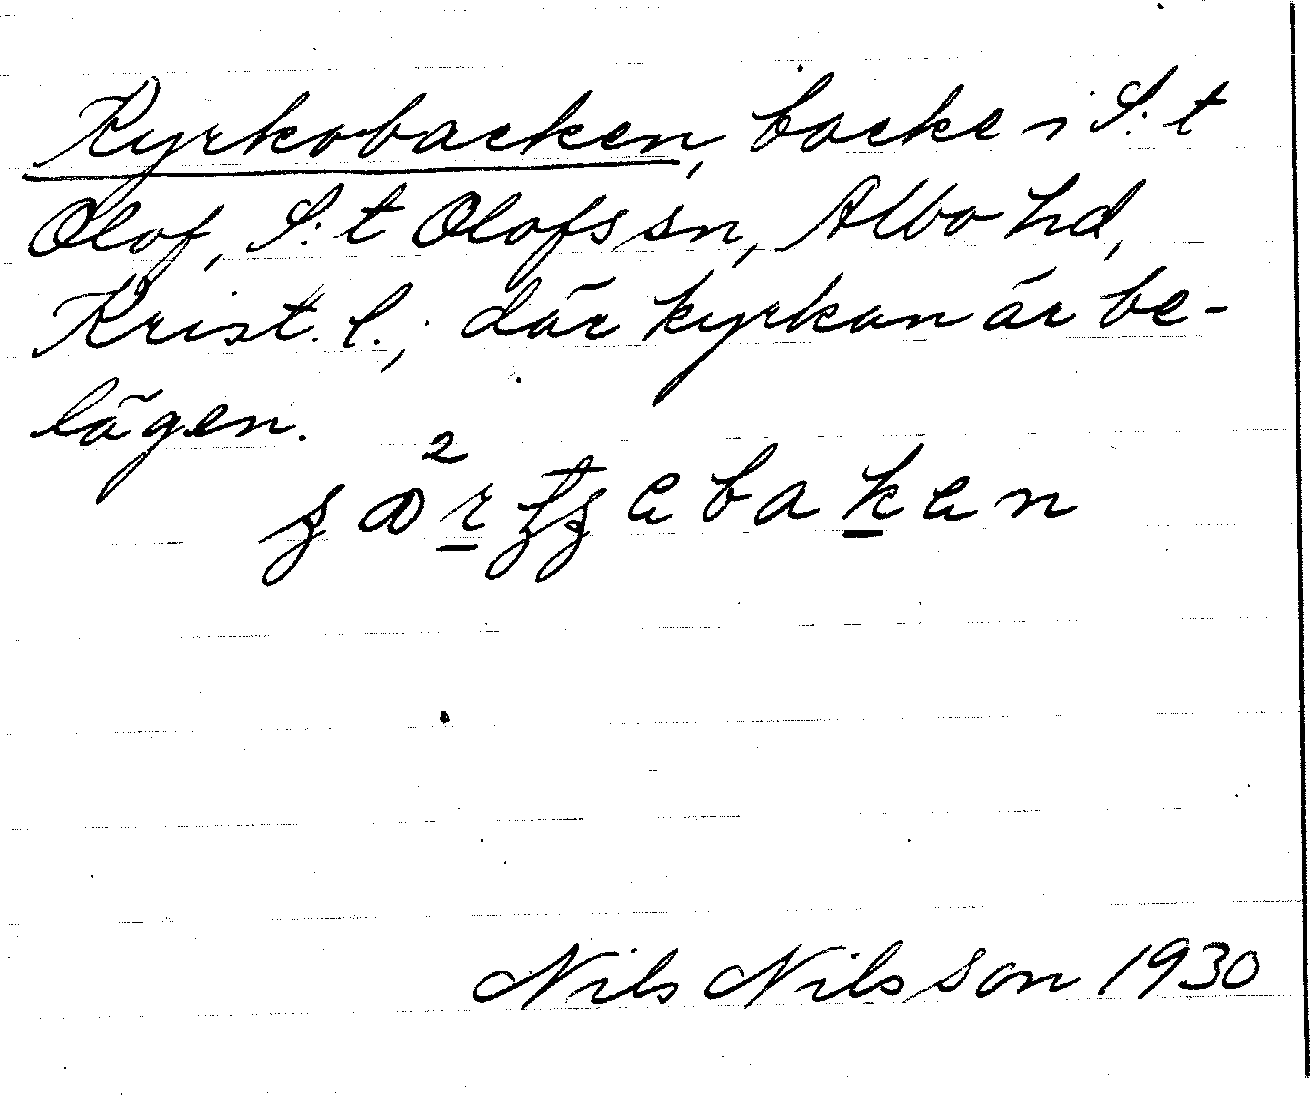 Kyrkobacken, backe i S:t
Olof, S:t Olofs sn, Albo hd,
Krist. l., där kyrkan är be-
lägen.
Nils Nilsson 1930